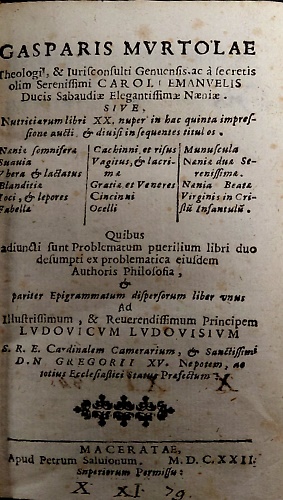 GASPARIS MVRTOLAE
Theologi, & Iurisconsulti Genuensis. ac à secretis
olim Serenissimi CAROLI EMANVELIS
Ducis Sabaudiæ Elegantissimæ Næniæ.
SIVE,
Nutriciarum libri XX. nuper in hac quinta impres-
sione aucti & diuisi in sequentes titulos.
Næniæ somniferæ
Suauia
Vbera & lactatus
Blanditiæ
Ioci, & lepores
Fabellæ
Cachinni, et risus
Vagitus, & lacri-
mæ
Gratiæ et Veneres
Cincinni
Ocelli
Munuscula
Næniæ duæ Se-
renissimæ.
Nænia Beatæ
Virginis in Cri-
stū Infantulū.
Quibus
adiuncti sunt Problematum puerilium libri duo
desumpti ex problematica eiusdem
Authoris Philosofia,
&
pariter Epigrammatum dispersorum liber vnus
Ad
Illustrissimum, & Reuerendissimum Principem
LVDOVICVM LVDOVISIVM
S. R. E. Cardinalem Camerarium, & Sanctissimi
D. N GREGORII XV. Nepotem, ac
totius Ecclesiastici status Præfectum.
X
MACERATAE,
Apud Petrum Saluionum. M. D. C. XXII.
Superiorum Permissu.
X XI 79